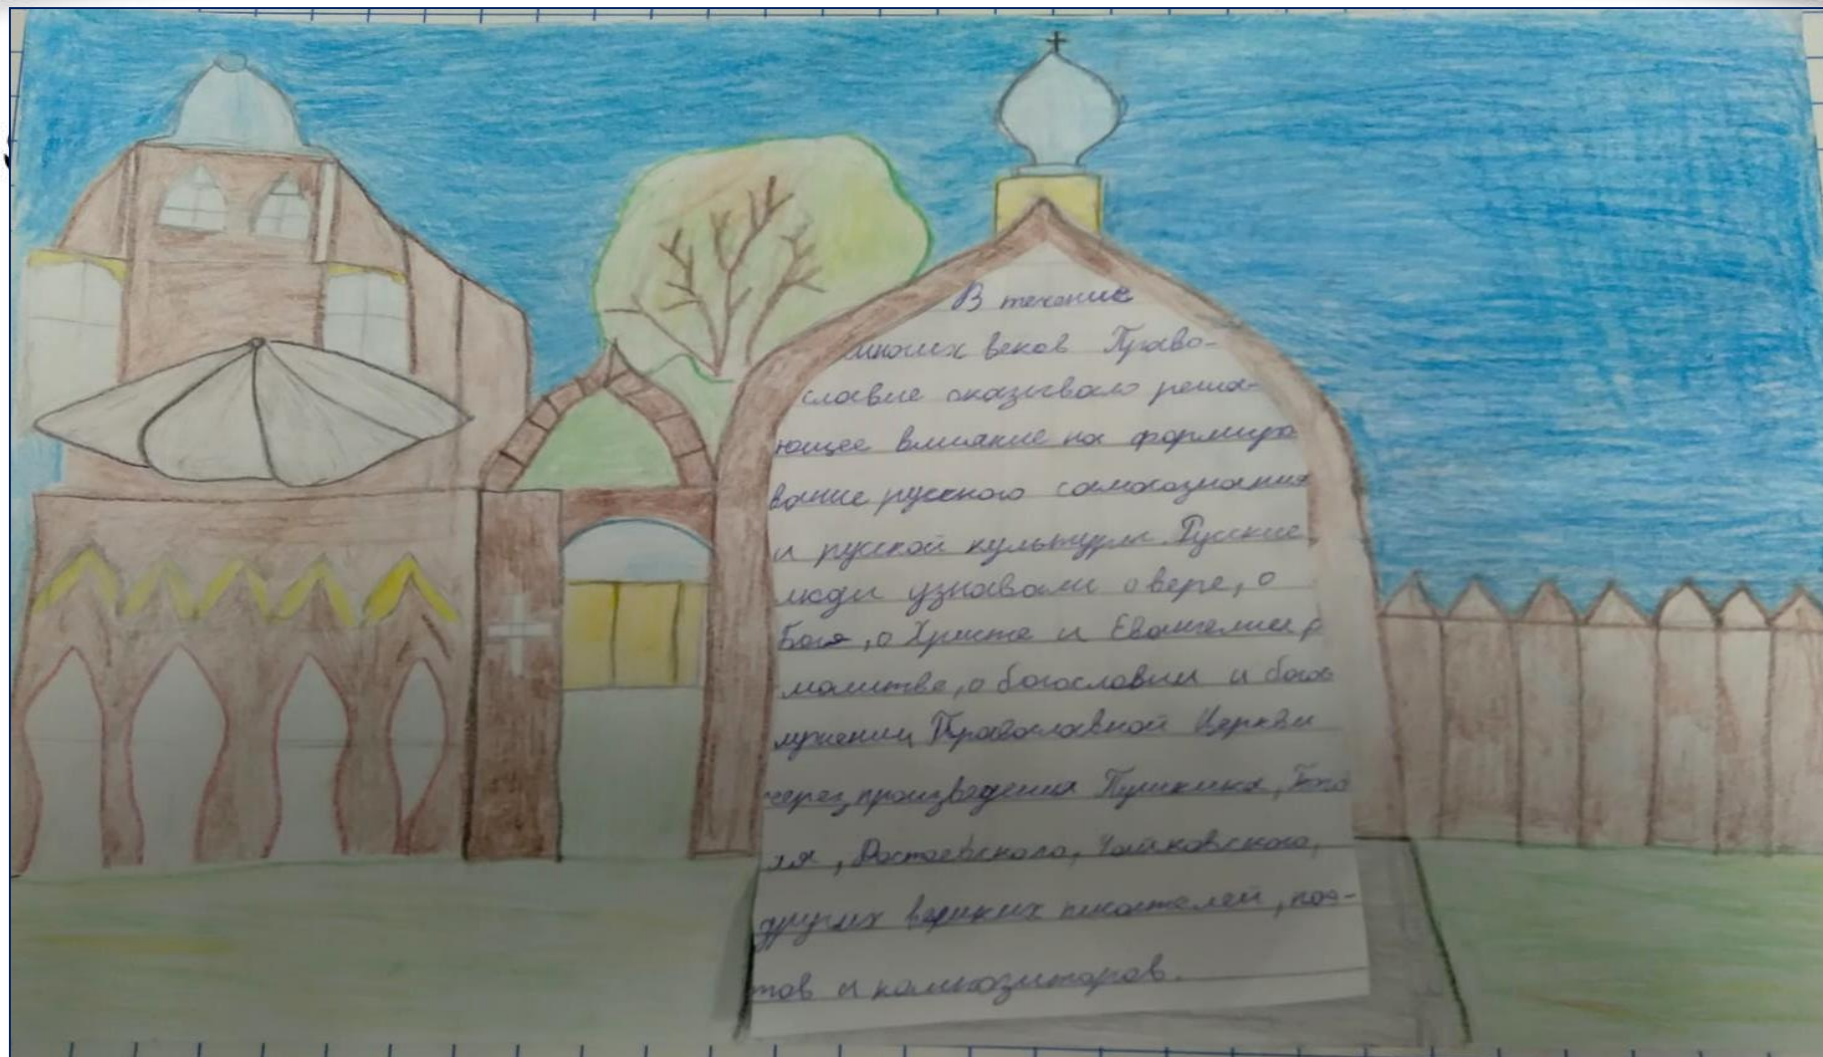 В течение
многих веков Право-
славие оказывало реша-
ющее влияние на формиро
вание русского самосознания
и русской культуры. Русские
люди узнавали о вере, о
Боге, о Христе и Евангелии, о
молитве, о богословии и бого
лужении Православной Церкви
через произведения Пушкина, Гого
ля, Достоевского, Чайковского,
других великих писателей, поэ-
тов и композиторов.